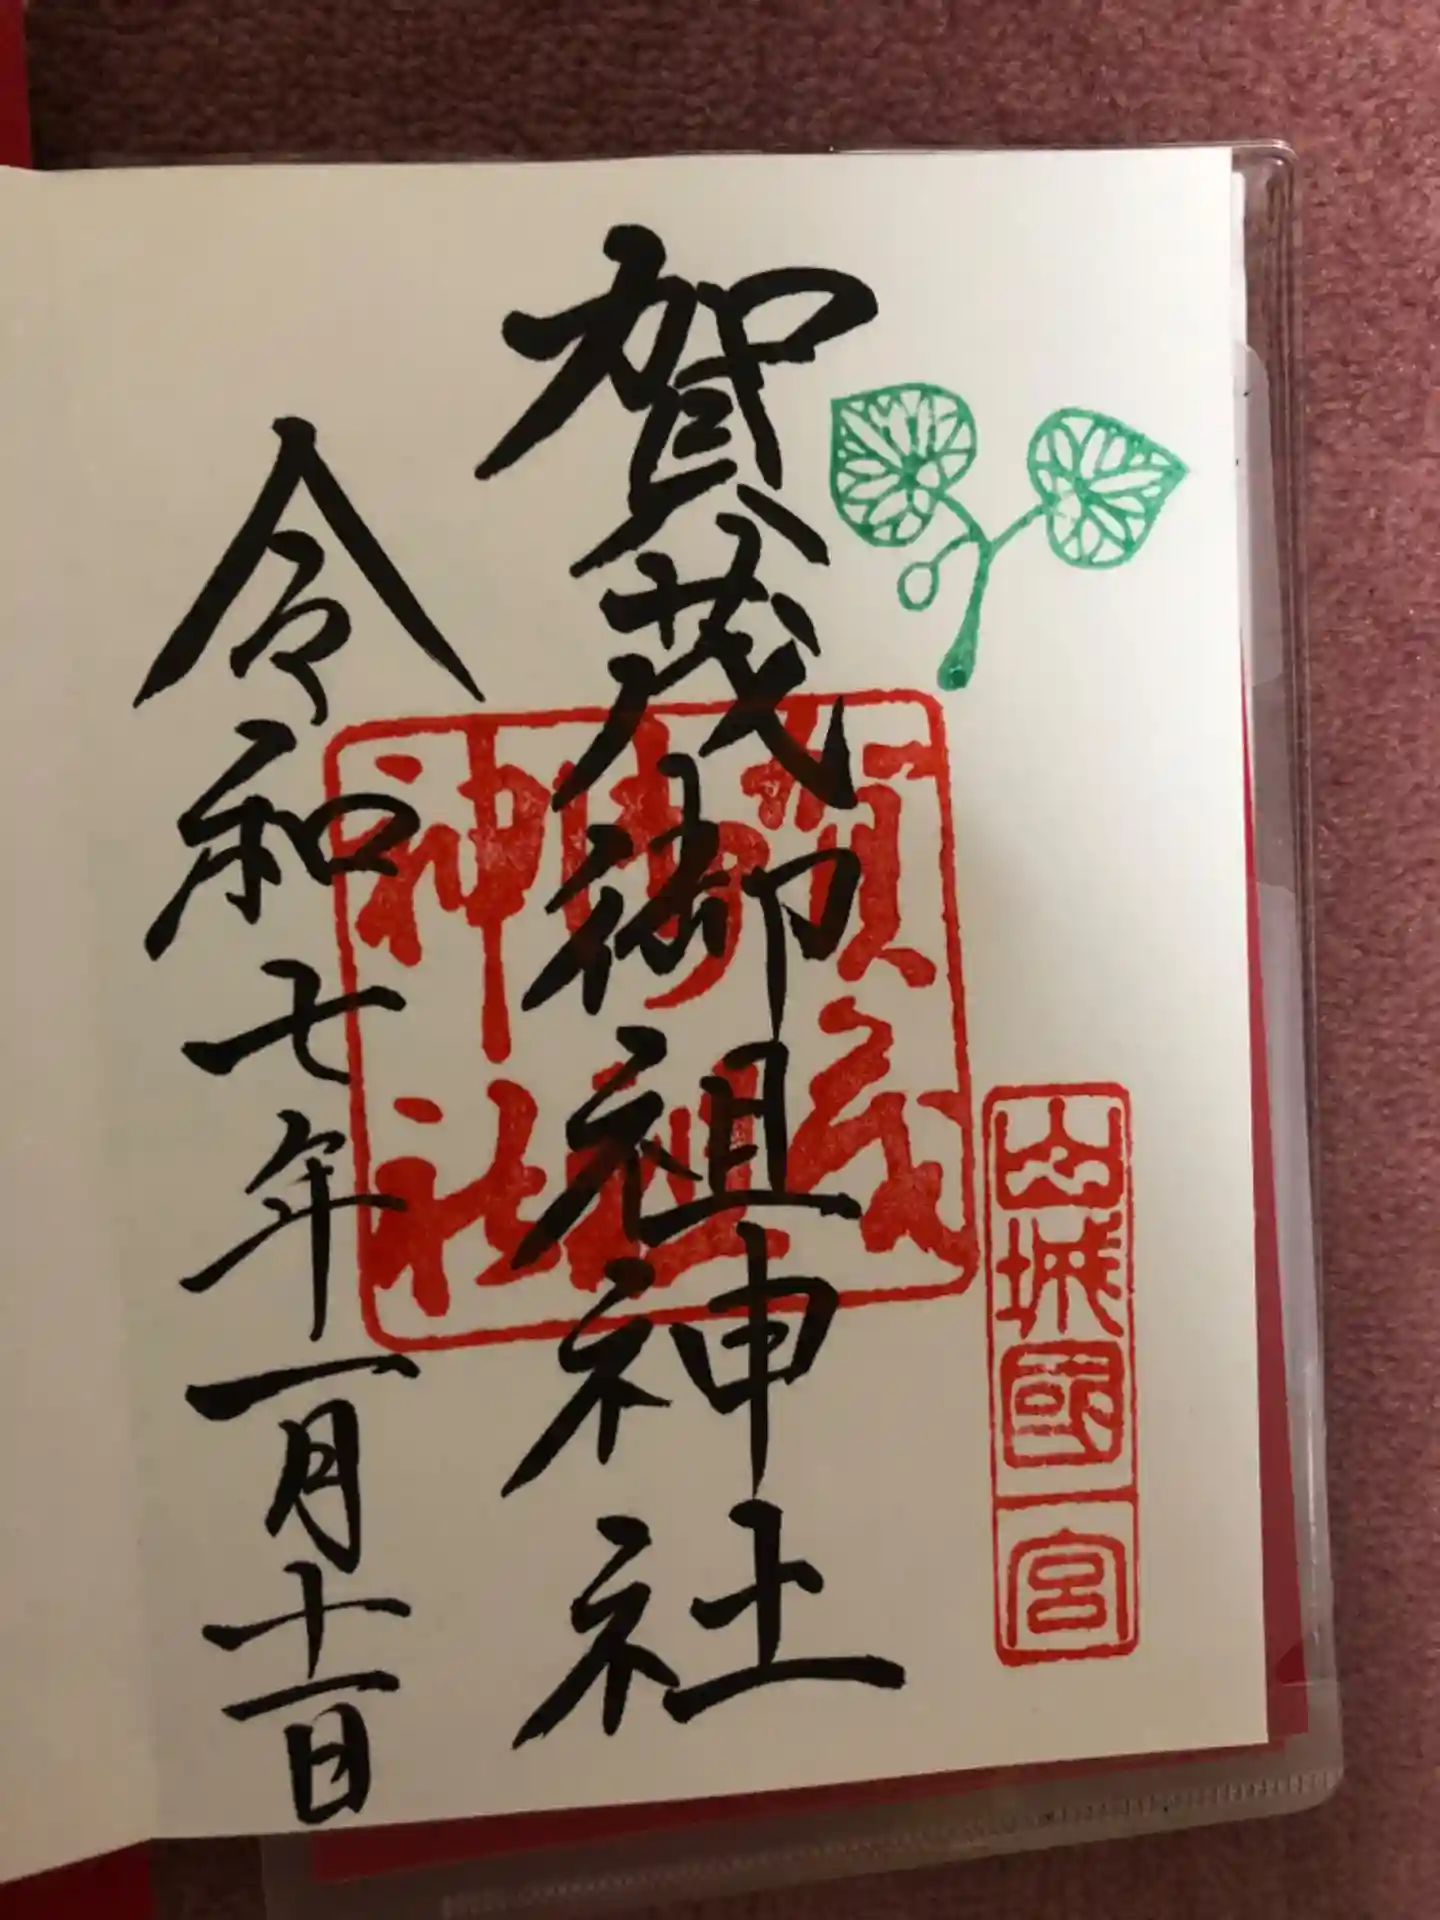 山城國一宮
賀茂御祖神社
賀茂
御祖
神社
令和七年一月十一日